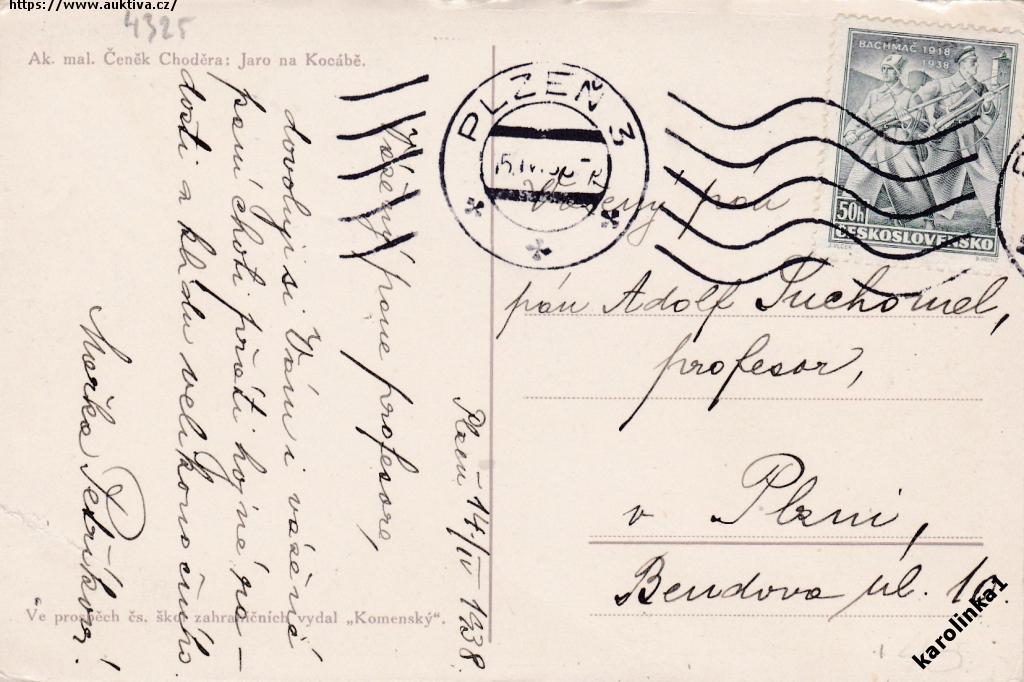 https://www.auktiva.cz/
4325
Ak. mal. Čeněk Choděra: Jaro na Kocábě.
Plzeň 14/IV 1938.
Vážený pane profesore,
dovoluji si Vám i vážené
paní choti přáti hojné ra-
dosti a klidu velikonočního
Petříková!
Ve prospěch čs. škol zahraničních vydal „Komenský".
PLZEŇ 3
BACHMAČ 1918
1938
50h
ČESKOSLOVENSKO
Vážený pán
pán Adolf Suchomel,
profesor,
v Plzni,
Bendova ul.
karolinka1